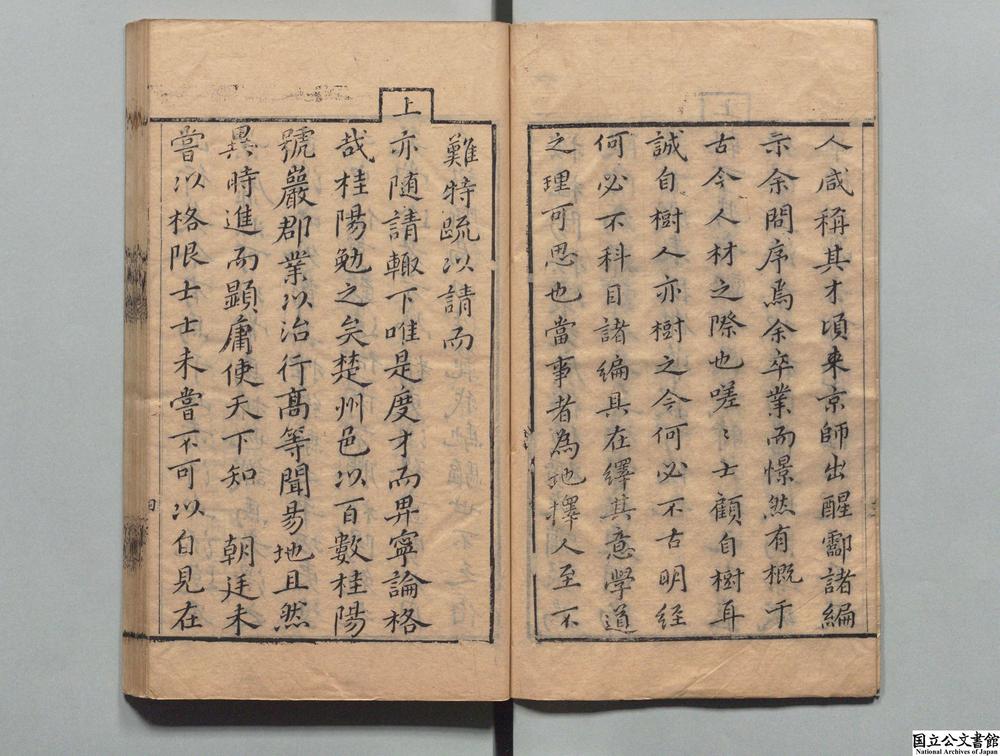 人咸稱其才頃来京師出醒酃諸編
示余問序焉余卒業而憬然有概于
古今人材之際也嗟〻士顧自樹耳
誠自樹人亦樹之今何必不古明經
何必不科目諸編具在繹其意學道
之理可思也當事者為地擇人至不
難特疏以請而
上
亦随請輙下唯是度才而畀寧論格
哉桂陽勉之矣楚州邑以百數桂陽
號巖郡業以治行高等聞昜地且然
異時進而顕庸使天下知 朝廷未
嘗以格限士士未嘗不可以自見在
四
国立公文書館
National Archives of Japan